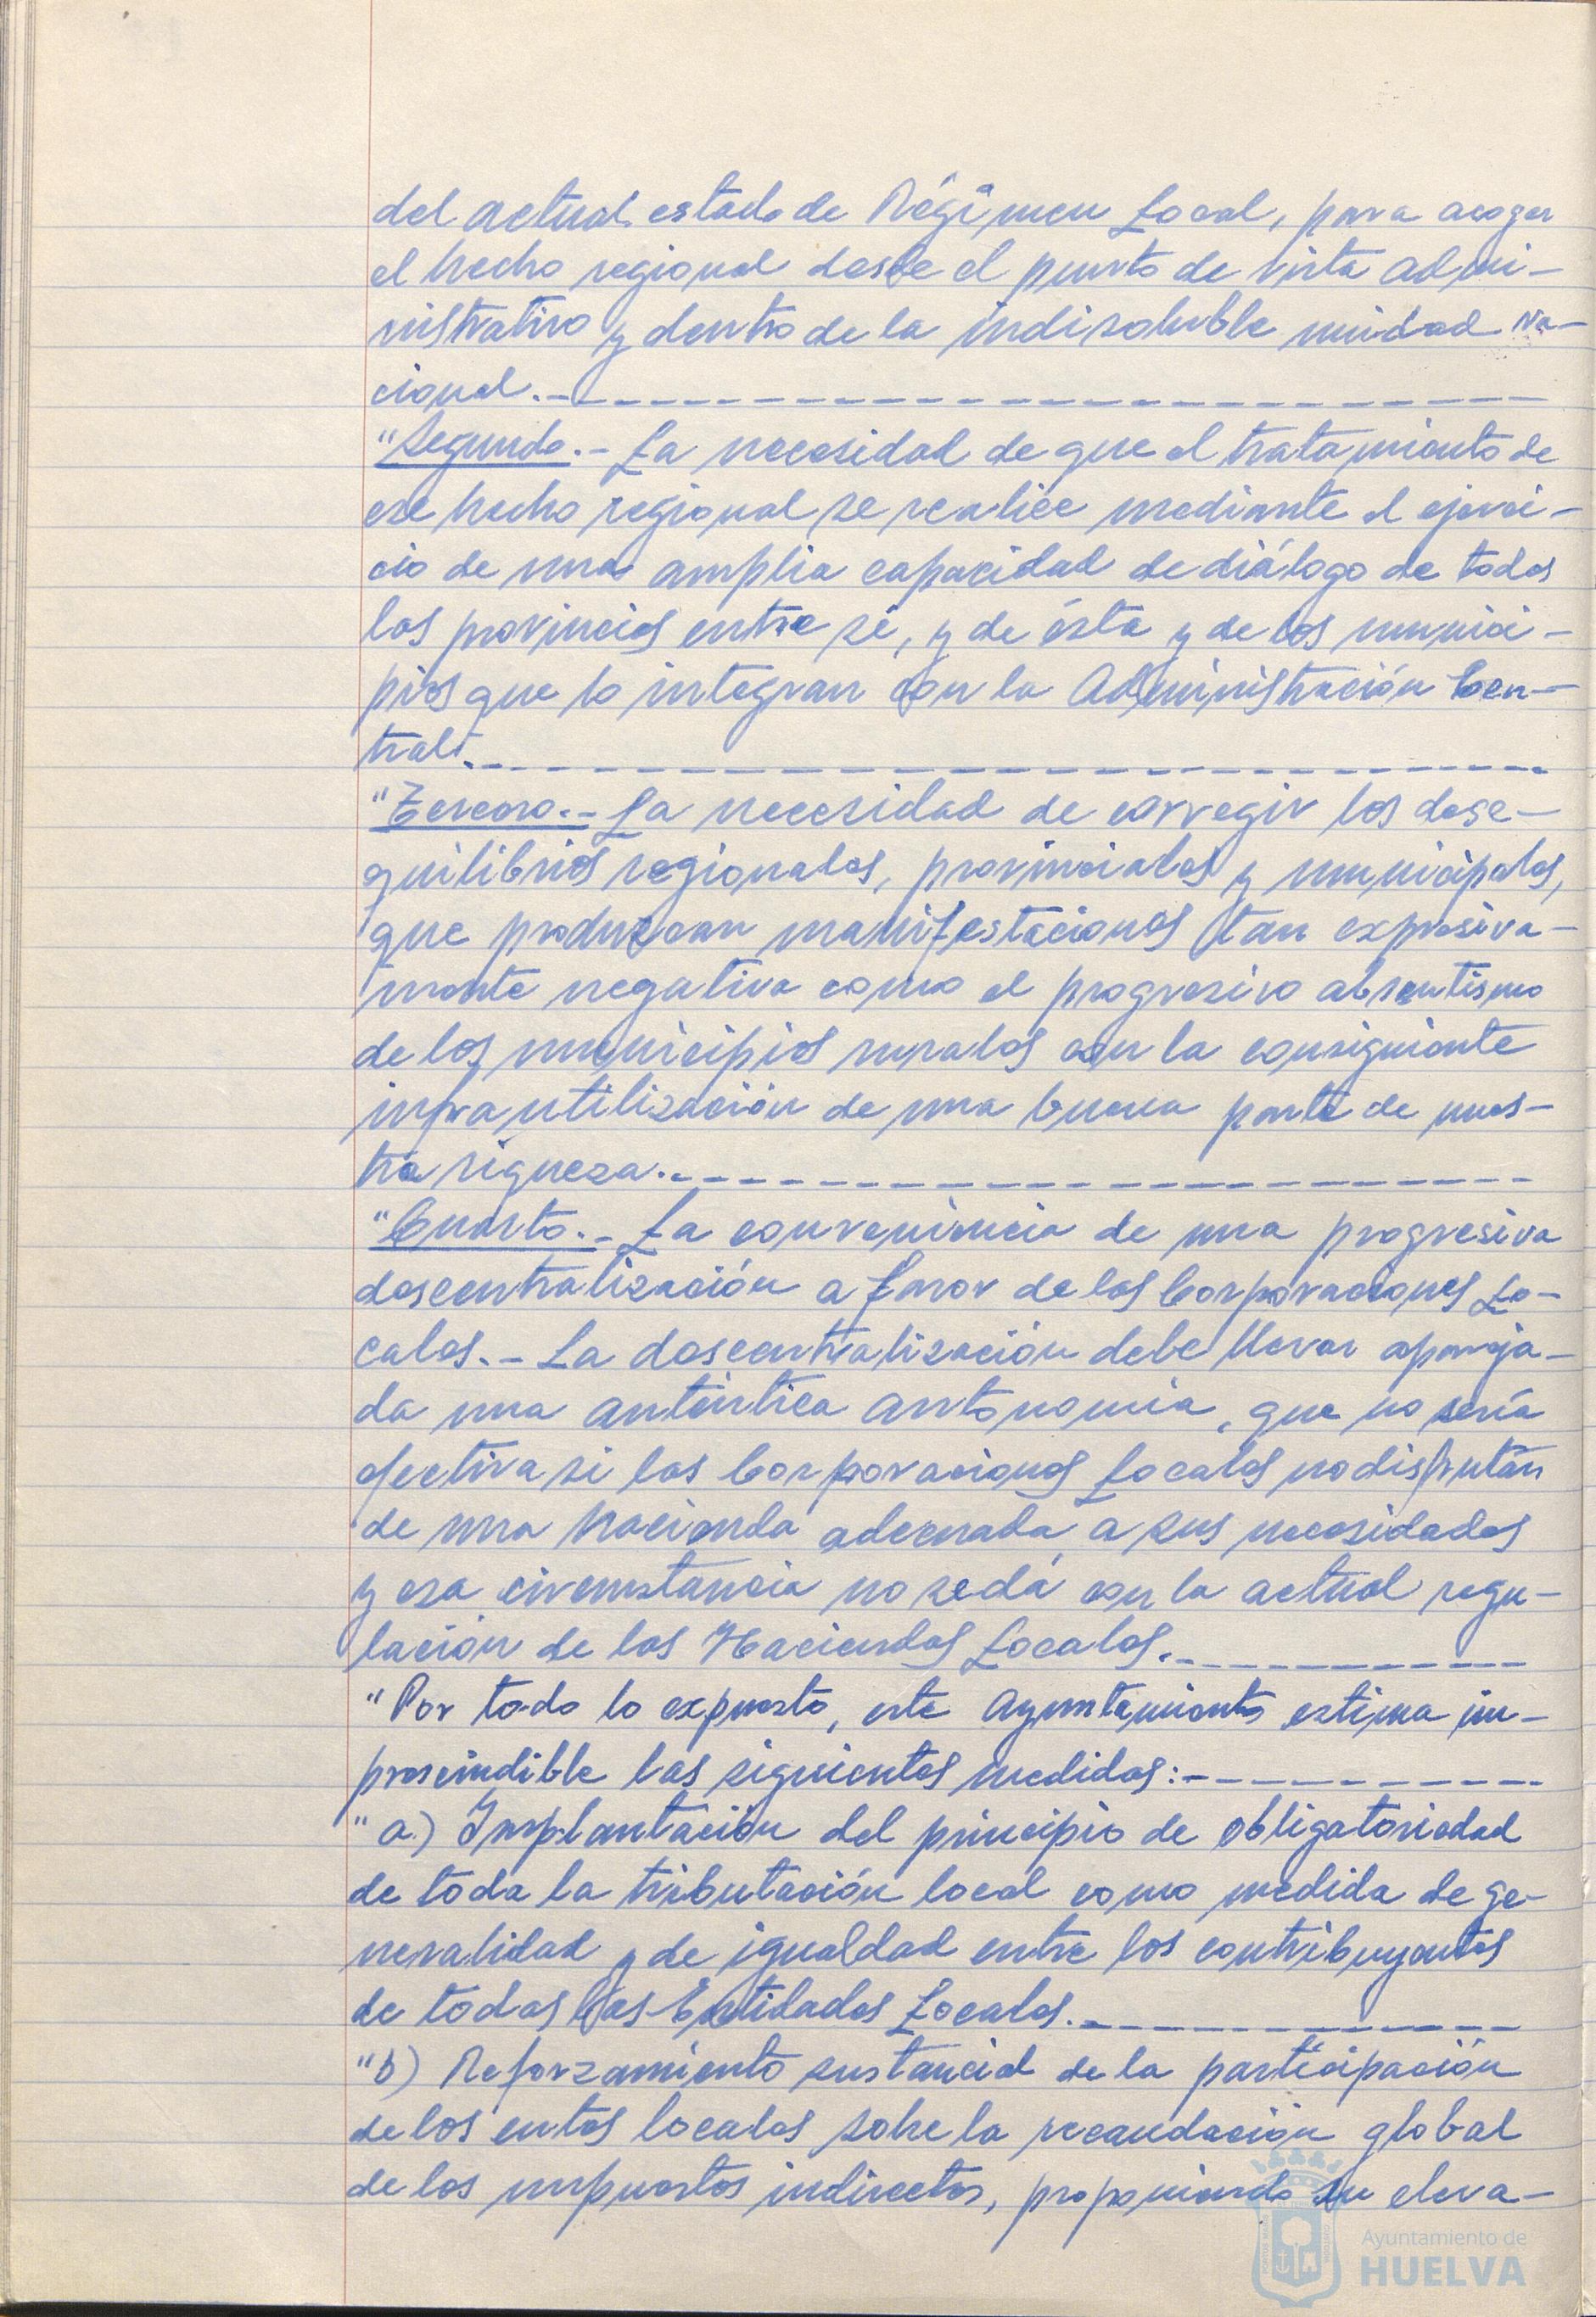 del actual estado de Régimen Local, para acoger
el hecho regional desde el punto de vista admi-
nistrativo y dentro de la indisoluble unidad na-
cional.-
"Segundo.- La necesidad de que el tratamiento de
ese hecho regional se realice mediante el ejerci-
cio de una amplia capacidad de diálogo de todas
las provincias entre sí, y de ésta y de los munici-
pios que lo integran con la Administración Cen-
tral.-
"Tercero.- La necesidad de corregir los dese-
quilibrios regionales, provinciales y municipales,
que produzcan manifestaciones tan expresiva-
mente negativa como el progresivo absentismo
de los municipios rurales con la consiguiente
infrautilización de una buena parte de nues-
tra riqueza.-
"Cuarto.- La conveniencia de una progresiva
descentralización a favor de las Corporaciones Lo-
cales.- La descentralización debe llevar apareja-
da una auténtica autonomía, que no sería
efectiva si las Corporaciones Locales no disfrutan
de una hacienda adecuada a sus necesidades
y esa circunstancia no se dá con la actual regu-
lación de las Haciendas Locales.-
"Por todo lo expuesto, este Ayuntamiento estima im-
prescindible las siguientes medidas:-
"a) Implantación del principio de obligatoriedad
de toda la tributación local como medida de ge-
neralidad y de igualdad entre los contribuyentes
de todas las Entidades Locales.-
"b) Reforzamiento sustancial de la participación
de los entes locales sobre la recaudación global
de los impuestos indirectos, proponiendo su eleva-
Ayuntamiento de
HUELVA